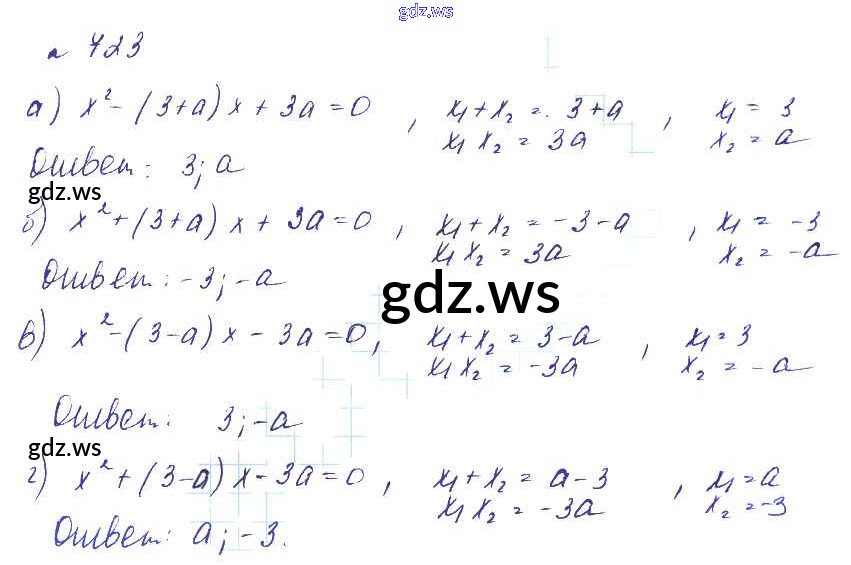 gdz.ws
№ 723
а) x² - (3+a)x + 3a = 0 , x₁ + x₂ = 3+a , x₁ = 3
x₁ x₂ = 3a x₂ = a
Ответ: 3; a
gdz.ws
б) x² + (3+a)x + 3a = 0 , x₁ + x₂ = -3-a , x₁ = -3
x₁ x₂ = 3a x₂ = -a
Ответ: -3; -a
gdz.ws
в) x² - (3-a)x - 3a = 0, x₁ + x₂ = 3-a , x₁ = 3
x₁ x₂ = -3a x₂ = -a
Ответ: 3; -a
gdz.ws
г) x² + (3-a)x - 3a = 0 , x₁ + x₂ = a-3 , x₁ = a
x₁ x₂ = -3a x₂ = -3
Ответ: a; -3.